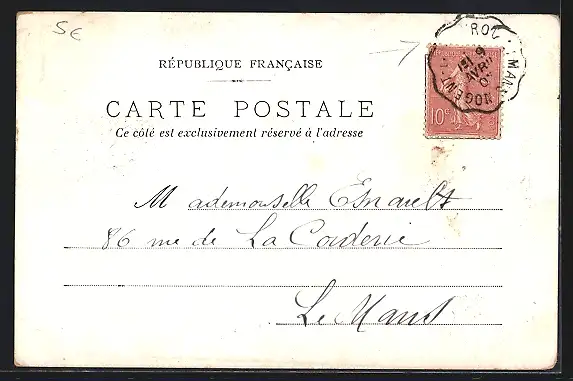 5€
RÉPUBLIQUE FRANÇAISE
CARTE POSTALE
Ce côté est exclusivement réservé à l'adresse
10c
MANS NOGENT
AVRIL
Mademoiselle Esnault
86 rue de La Corderie
Le Mans